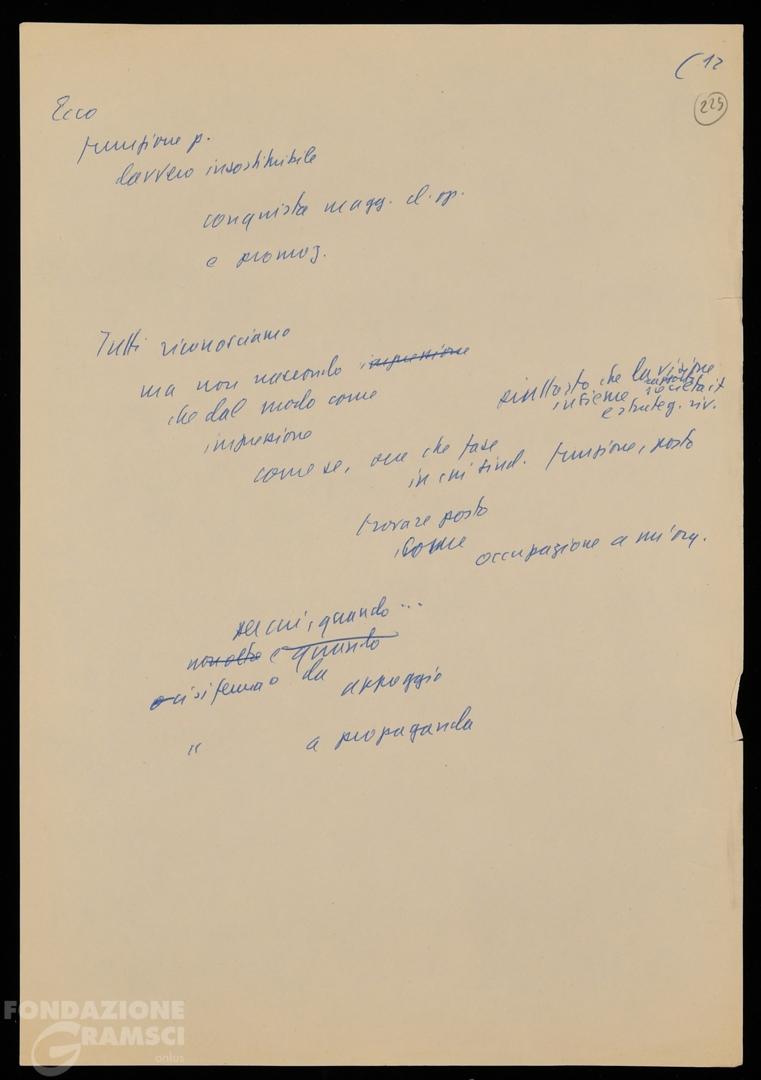 ( 12
225
Ecco
funzione p.
davvero insostituibile
conquista magg. d. op.
e promoz.
Tutti riconosciamo
ma non nascondo impressione
che dal modo come
impressione
piuttosto che la visione
insieme società it
e strateg. riv.
come se, ora che fase
in cui sind. funzione, posto
trovare posto
come
occupazione a mi'org.
per cui, quando...
non altro e quando
ci si ferma o da appoggio
" a propaganda
FONDAZIONE
GRAMSCI
onlus